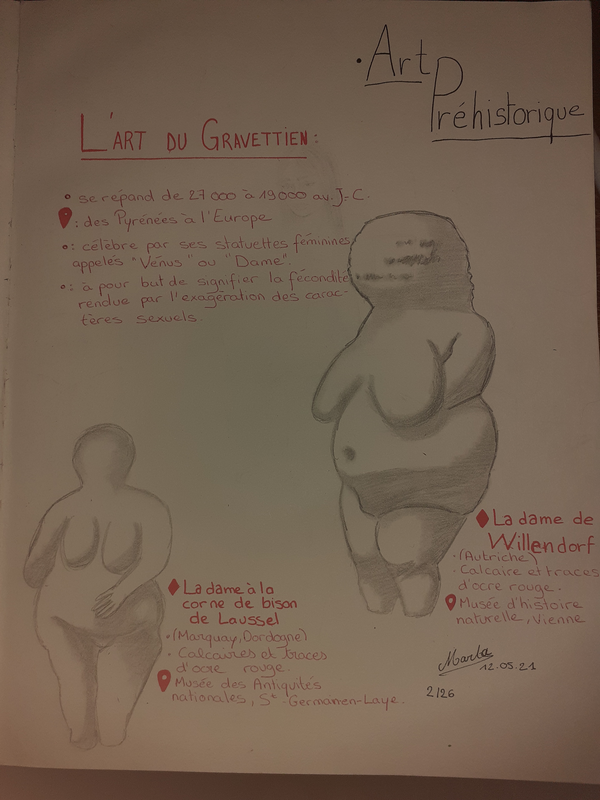 · Art
Préhistorique
L'ART DU GRAVETTIEN :
° se répand de 27 000 à 19000 av. J-C.
: des Pyrénées à l'Europe
°: célèbre par ses statuettes féminines
appelés "Vénus" ou "Dame".
°: à pour but de signifier la fécondité
rendue par l'exagération des carac-
tères sexuels.
La dame de
Willendorf
· (Autriche)
· Calcaire et traces
d'ocre rouge.
Musée d'histoire
naturelle, Vienne
La dame à la
corne de bison
de Laussel
· (Marquay, Dordogne)
· Calcaires et traces
d'ocre rouge.
Musée des Antiquités
nationales, St-Germanen-Laye.
Marla
12.05.21
2/26